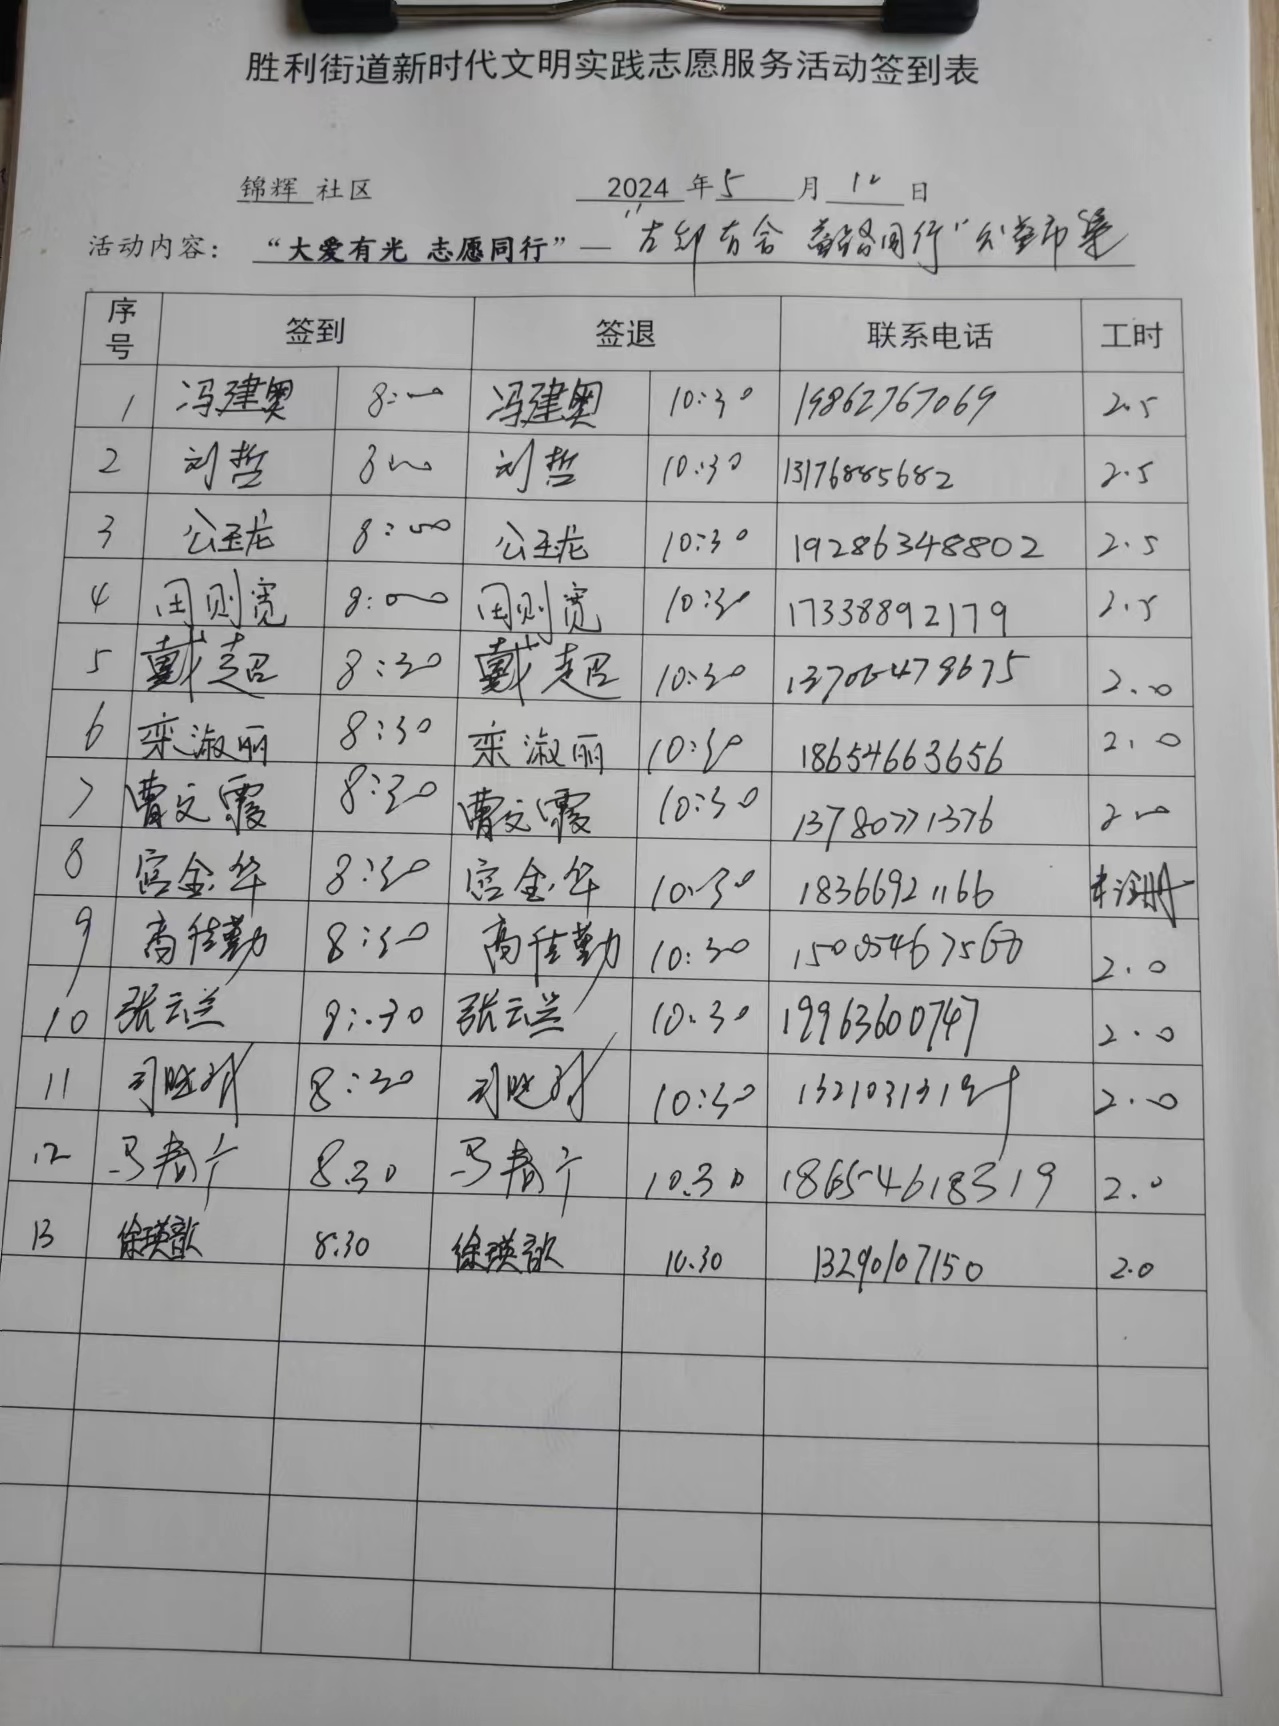 胜利街道新时代文明实践志愿服务活动签到表
锦辉 社区 2024 年 5 月 12 日
活动内容： “大爱有光 志愿同行”—“左邻有舍 同行”公益市集
序号 签到 签退 联系电话 工时
1 冯建奥 8:00 冯建奥 10:30 19862767069 2.5
2 刘哲 8:00 刘哲 10:30 13176885682 2.5
3 公玉龙 8:00 公玉龙 10:30 19286348802 2.5
4 田则宽 8:00 田则宽 10:30 17338892179 2.5
5 戴超 8:30 戴超 10:30 2.0
6 栾淑丽 8:30 栾淑丽 10:30 18654663656 2.0
7 曹文霞 8:30 曹文霞 10:30 13780771376 2.0
8 宫金华 8:30 宫金华 10:30 18366921166 未注册
9 高佳勤 8:30 高佳勤 10:30 2.0
10 张云兰 8:30 张云兰 10:30 19963600747 2.0
11 8:30 10:30 2.0
12 8.30 10.30 18654618319 2.0
13 徐瑛歆 8.30 徐瑛歆 10.30 13290107150 2.0